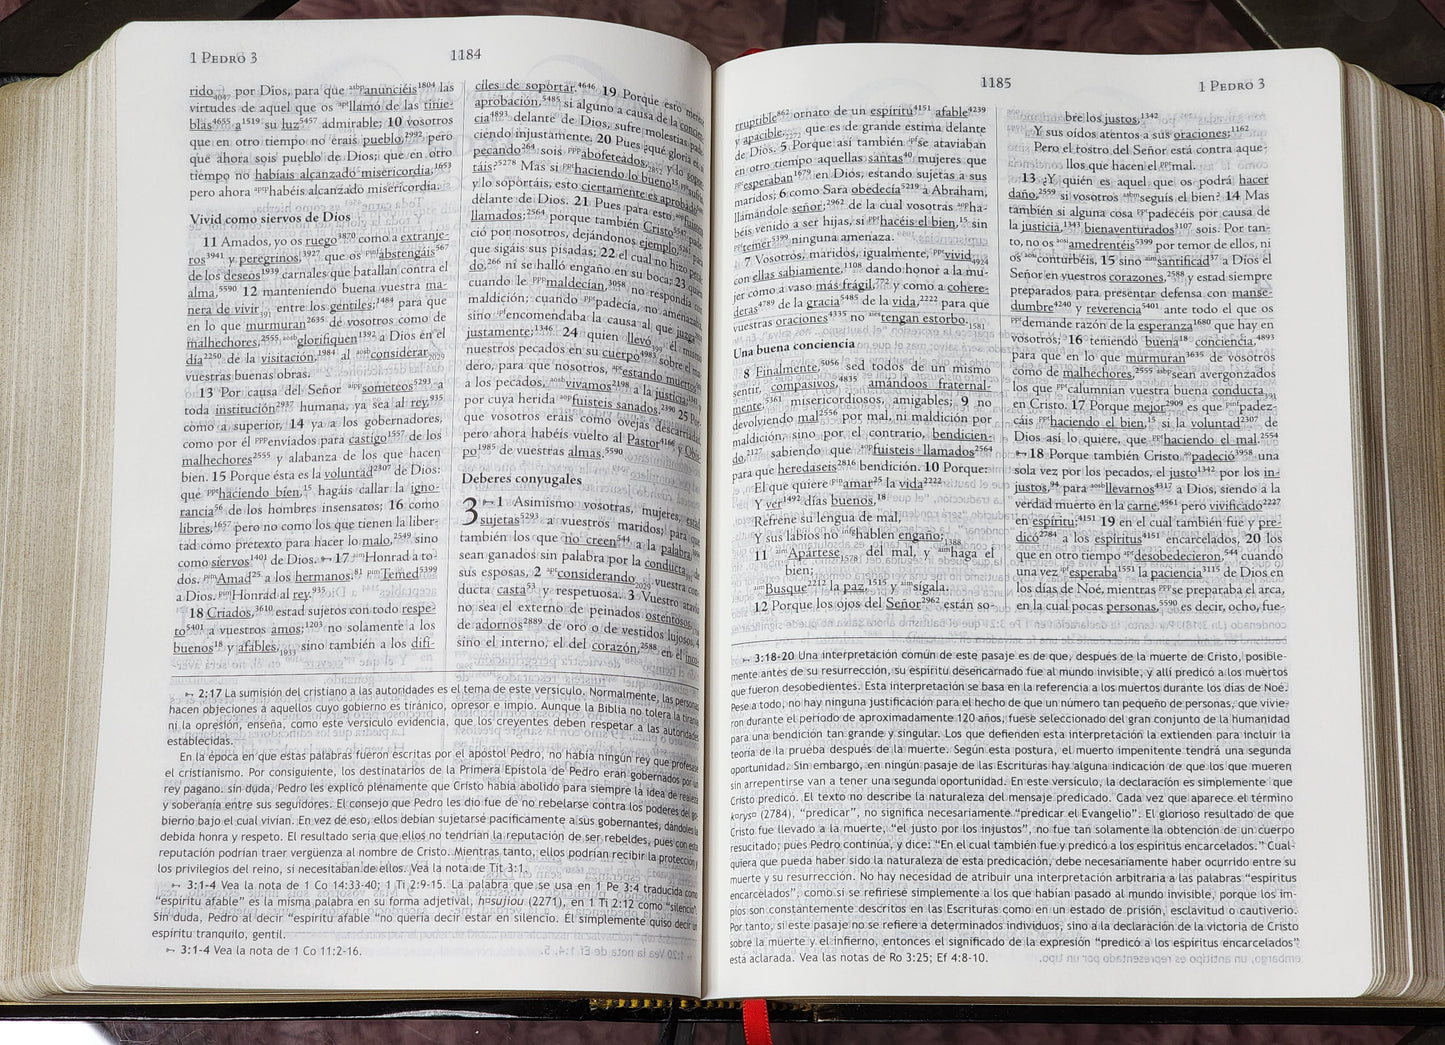 1 Pedro 3
1184
rido4047 por Dios, para que aibpanunciéis1804 las
virtudes de aquel que os apllamó de las tinie-
blas4655 a1519 su luz5457 admirable; 10 vosotros
que en otro tiempo no érais pueblo,2992 pero
que ahora sois pueblo de Dios; que en otro
tiempo no habíais alcanzado misericordia,1653
pero ahora apphabéis alcanzado misericordia.
Vivid como siervos de Dios
11 Amados, yo os ruego3870 como a extranje-
ros3941 y peregrinos,3927 que os pinabstengáis567
de los deseos1939 carnales que batallan contra el
alma,5590 12 manteniendo buena vuestra ma-
nera de vivir391 entre los gentiles;1484 para que
en lo que murmuran2635 de vosotros como de
malhechores,2555 aosbglorifiquen1392 a Dios en el
día2250 de la visitación,1984 al aosbconsiderar2029
vuestras buenas obras.
13 Por causa del Señor aippsometeos5293 a
toda institución2937 humana, ya sea al rey,935
como a superior, 14 ya a los gobernadores,
como por él pppenviados para castigo1557 de los
malhechores2555 y alabanza de los que hacen
bien. 15 Porque ésta es la voluntad2307 de Dios:
que pphaciendo bien,15 hagáis callar la igno-
rancia56 de los hombres insensatos; 16 como
libres,1657 pero no como los que tienen la liber-
tad como pretexto para hacer lo malo,2549 sino
como siervos1401 de Dios. 17 aimHonrad a to-
dos. pimAmad25 a los hermanos.81 pimTemed5399
a Dios. pimHonrad al rey.935
18 Criados,3610 estad sujetos con todo respe-
to5401 a vuestros amos;1203 no solamente a los
buenos18 y afables,1933 sino también a los difí-
ciles de soportar.4646 19 Porque esto merece
aprobación,5485 si alguno a causa de la concien-
cia4893 delante de Dios, sufre molestias pade-
ciendo injustamente. 20 Pues ¿qué gloria es, si
pecando264 sois abofeteados,2852 y lo sopor-
táis?5278 Mas si ppthaciendo lo bueno15 pptsufrís
y lo soportáis, esto ciertamente es aprobado
delante de Dios. 21 Pues para esto aopfuisteis
llamados;2564 porque también Cristo5547 pade-
ció por nosotros, dejándonos ejemplo,5261 para
que sigáis sus pisadas; 22 el cual no hizo peca-
do,266 ni se halló engaño en su boca; 23 quien
cuando le pppmaldecían,3058 no respondía con
maldición; cuando pptpadecía, no amenazaba,
sino ipfencomendaba la causa al que juzga
justamente;1346 24 quien llevó399 él mismo
nuestros pecados en su cuerpo4983 sobre el ma-
dero, para que nosotros, aptestando muertos
a los pecados, aosbvivamos2198 a la justicia;1343 y
por cuya herida aopfuisteis sanados.2390 25 Por-
que vosotros erais como ovejas descarriadas,
pero ahora habéis vuelto al Pastor4166 y Obis-
po1985 de vuestras almas.5590
Deberes conyugales
3 1 Asimismo vosotras, mujeres, estad
sujetas5293 a vuestros maridos; para que
también los que no creen544 a la palabra,3056
sean ganados sin palabra por la conducta391 de
sus esposas, 2 aptconsiderando2029 vuestra con-
ducta casta53 y respetuosa. 3 Vuestro atavío
no sea el externo de peinados ostentosos,
de adornos2889 de oro o de vestidos lujosos, 4
sino el interno, el del corazón,2588 en el inco-
2:17 La sumisión del cristiano a las autoridades es el tema de este versículo. Normalmente, las personas
hacen objeciones a aquellos cuyo gobierno es tiránico, opresor e impío. Aunque la Biblia no tolera la tiranía
ni la opresión, enseña, como este versículo evidencia, que los creyentes deben respetar a las autoridades
establecidas.
En la época en que estas palabras fueron escritas por el apóstol Pedro, no había ningún rey que profesase
el cristianismo. Por consiguiente, los destinatarios de la Primera Epístola de Pedro eran gobernados por un
rey pagano. sin duda, Pedro les explicó plenamente que Cristo había abolido para siempre la idea de realeza
y soberanía entre sus seguidores. El consejo que Pedro les dio fue de no rebelarse contra los poderes del go-
bierno bajo el cual vivían. En vez de eso, ellos debían sujetarse pacíficamente a sus gobernantes, dándoles la
debida honra y respeto. El resultado sería que ellos no tendrían la reputación de ser rebeldes, pues con esta
reputación podrían traer vergüenza al nombre de Cristo. Mientras tanto, ellos podrían recibir la protección y
los privilegios del reino, si necesitaban de ellos. Vea la nota de Tit 3:1.
3:1-4 Vea la nota de 1 Co 14:33-40; 1 Ti 2:9-15. La palabra que se usa en 1 Pe 3:4 traducida como
"espíritu afable" es la misma palabra en su forma adjetival, h¤sujiou (2271), en 1 Ti 2:12 como "silencio".
Sin duda, Pedro al decir "espíritu afable" no quería decir estar en silencio. Él simplemente quiso decir un
espíritu tranquilo, gentil.
3:1-4 Vea la nota de 1 Co 11:2-16.
1185
1 Pedro 3
rruptible862 ornato de un espíritu4151 afable4239
y apacible,2272 que es de grande estima delante
de Dios. 5 Porque así también ipfse ataviaban
en otro tiempo aquellas santas40 mujeres que
pptesperaban1679 en Dios, estando sujetas a sus
maridos; 6 como Sara obedecía5219 a Abraham,
llamándole señor;2962 de la cual vosotras aopha-
béis venido a ser hijas, si ppthacéis el bien,15 sin
ppttemer5399 ninguna amenaza.
7 Vosotros, maridos, igualmente, pptvivid4924
con ellas sabiamente,1108 dando honor a la mu-
jer como a vaso más frágil,772 y como a cohere-
deras4789 de la gracia5485 de la vida,2222 para que
vuestras oraciones4335 no infgtengan estorbo.1581
Una buena conciencia
8 Finalmente,5056 sed todos de un mismo
sentir, compasivos,4835 amándoos fraternal-
mente,5361 misericordiosos, amigables; 9 no
devolviendo mal2556 por mal, ni maldición por
maldición, sino por el contrario, bendicien-
do,2127 sabiendo que aopfuisteis llamados2564
para que heredaseis2816 bendición. 10 Porque:
El que quiere pinamar25 la vida2222
Y ver1492 días buenos,18
Refrene su lengua de mal,
Y sus labios no ainfhablen engaño;1388
11 aimApártese1578 del mal, y aimhaga el
bien;
aimBusque2212 la paz,1515 y aimsígala.
12 Porque los ojos del Señor2962 están so-
bre los justos,1342
Y sus oídos atentos a sus oraciones;1162
Pero el rostro del Señor está contra aque-
llos que hacen el pptmal.
13 ¿Y quién es aquel que os podrá hacer
daño,2559 si vosotros aosbmseguís el bien? 14 Mas
también si alguna cosa pptpadecéis por causa de
la justicia,1343 bienaventurados3107 sois. Por tan-
to, no os aosiamedrentéis5399 por temor de ellos, ni
os aosiconturbéis, 15 sino aimsantificad37 a Dios el
Señor en vuestros corazones,2588 y estad siempre
preparados para presentar defensa con manse-
dumbre4240 y reverencia5401 ante todo el que os
pptdemande razón de la esperanza1680 que hay en
vosotros; 16 teniendo buena18 conciencia,4893
para que en lo que murmuran2635 de vosotros
como de malhechores,2555 asbpsean avergonzados
los que pptcalumnian vuestra buena conducta391
en Cristo. 17 Porque mejor2909 es que pinfpadez-
cáis ppthaciendo el bien,15 si la voluntad2307 de
Dios así lo quiere, que ppthaciendo el mal.2554
18 Porque también Cristo aopadeció3958 una
sola vez por los pecados, el justo1342 por los in-
justos,94 para aosbllevarnos4317 a Dios, siendo a la
verdad muerto en la carne,4561 pero vivificado2227
en espíritu;4151 19 en el cual también fue y pre-
dicó2784 a los espíritus4151 encarcelados, 20 los
que en otro tiempo aptdesobedecieron,544 cuando
una vez ipfesperaba1551 la paciencia3115 de Dios en
los días de Noé, mientras pppse preparaba el arca,
en la cual pocas personas,5590 es decir, ocho, fue-
3:18-20 Una interpretación común de este pasaje es de que, después de la muerte de Cristo, posible-
mente antes de su resurrección, su espíritu desencarnado fue al mundo invisible, y allí predicó a los muertos
que fueron desobedientes. Esta interpretación se basa en la referencia a los muertos durante los días de Noé.
Pese a todo, no hay ninguna justificación para el hecho de que un número tan pequeño de personas, que vivie-
ron durante el período de aproximadamente 120 años, fuese seleccionado del gran conjunto de la humanidad
para una bendición tan grande y singular. Los que defienden esta interpretación la extienden para incluir la
teoría de la prueba después de la muerte. Según esta postura, el muerto impenitente tendrá una segunda
oportunidad. Sin embargo, en ningún pasaje de las Escrituras hay alguna indicación de que los que mueren
sin arrepentirse van a tener una segunda oportunidad. En este versículo, la declaración es simplemente que
Cristo predicó. El texto no describe la naturaleza del mensaje predicado. Cada vez que aparece el término
k¤rys¤ (2784), "predicar", no significa necesariamente "predicar el Evangelio". El glorioso resultado de que
Cristo fue llevado a la muerte, "el justo por los injustos", no fue tan solamente la obtención de un cuerpo
resucitado; pues Pedro continúa, y dice: "En el cual también fue y predicó a los espíritus encarcelados." Cual-
quiera que pueda haber sido la naturaleza de esta predicación, debe necesariamente haber ocurrido entre su
muerte y su resurrección. No hay necesidad de atribuir una interpretación arbitraria a las palabras "espíritus
encarcelados", como si se refiriese simplemente a los que habían pasado al mundo invisible, porque los im-
píos son constantemente descritos en las Escrituras como en un estado de prisión, esclavitud o cautiverio.
Por tanto, si este pasaje no se refiere a determinados individuos, sino a la declaración de la victoria de Cristo
sobre la muerte y el infierno, entonces el significado de la expresión "predicó a los espíritus encarcelados"
está aclarada. Vea las notas de Ro 3:25; Ef 4:8-10.